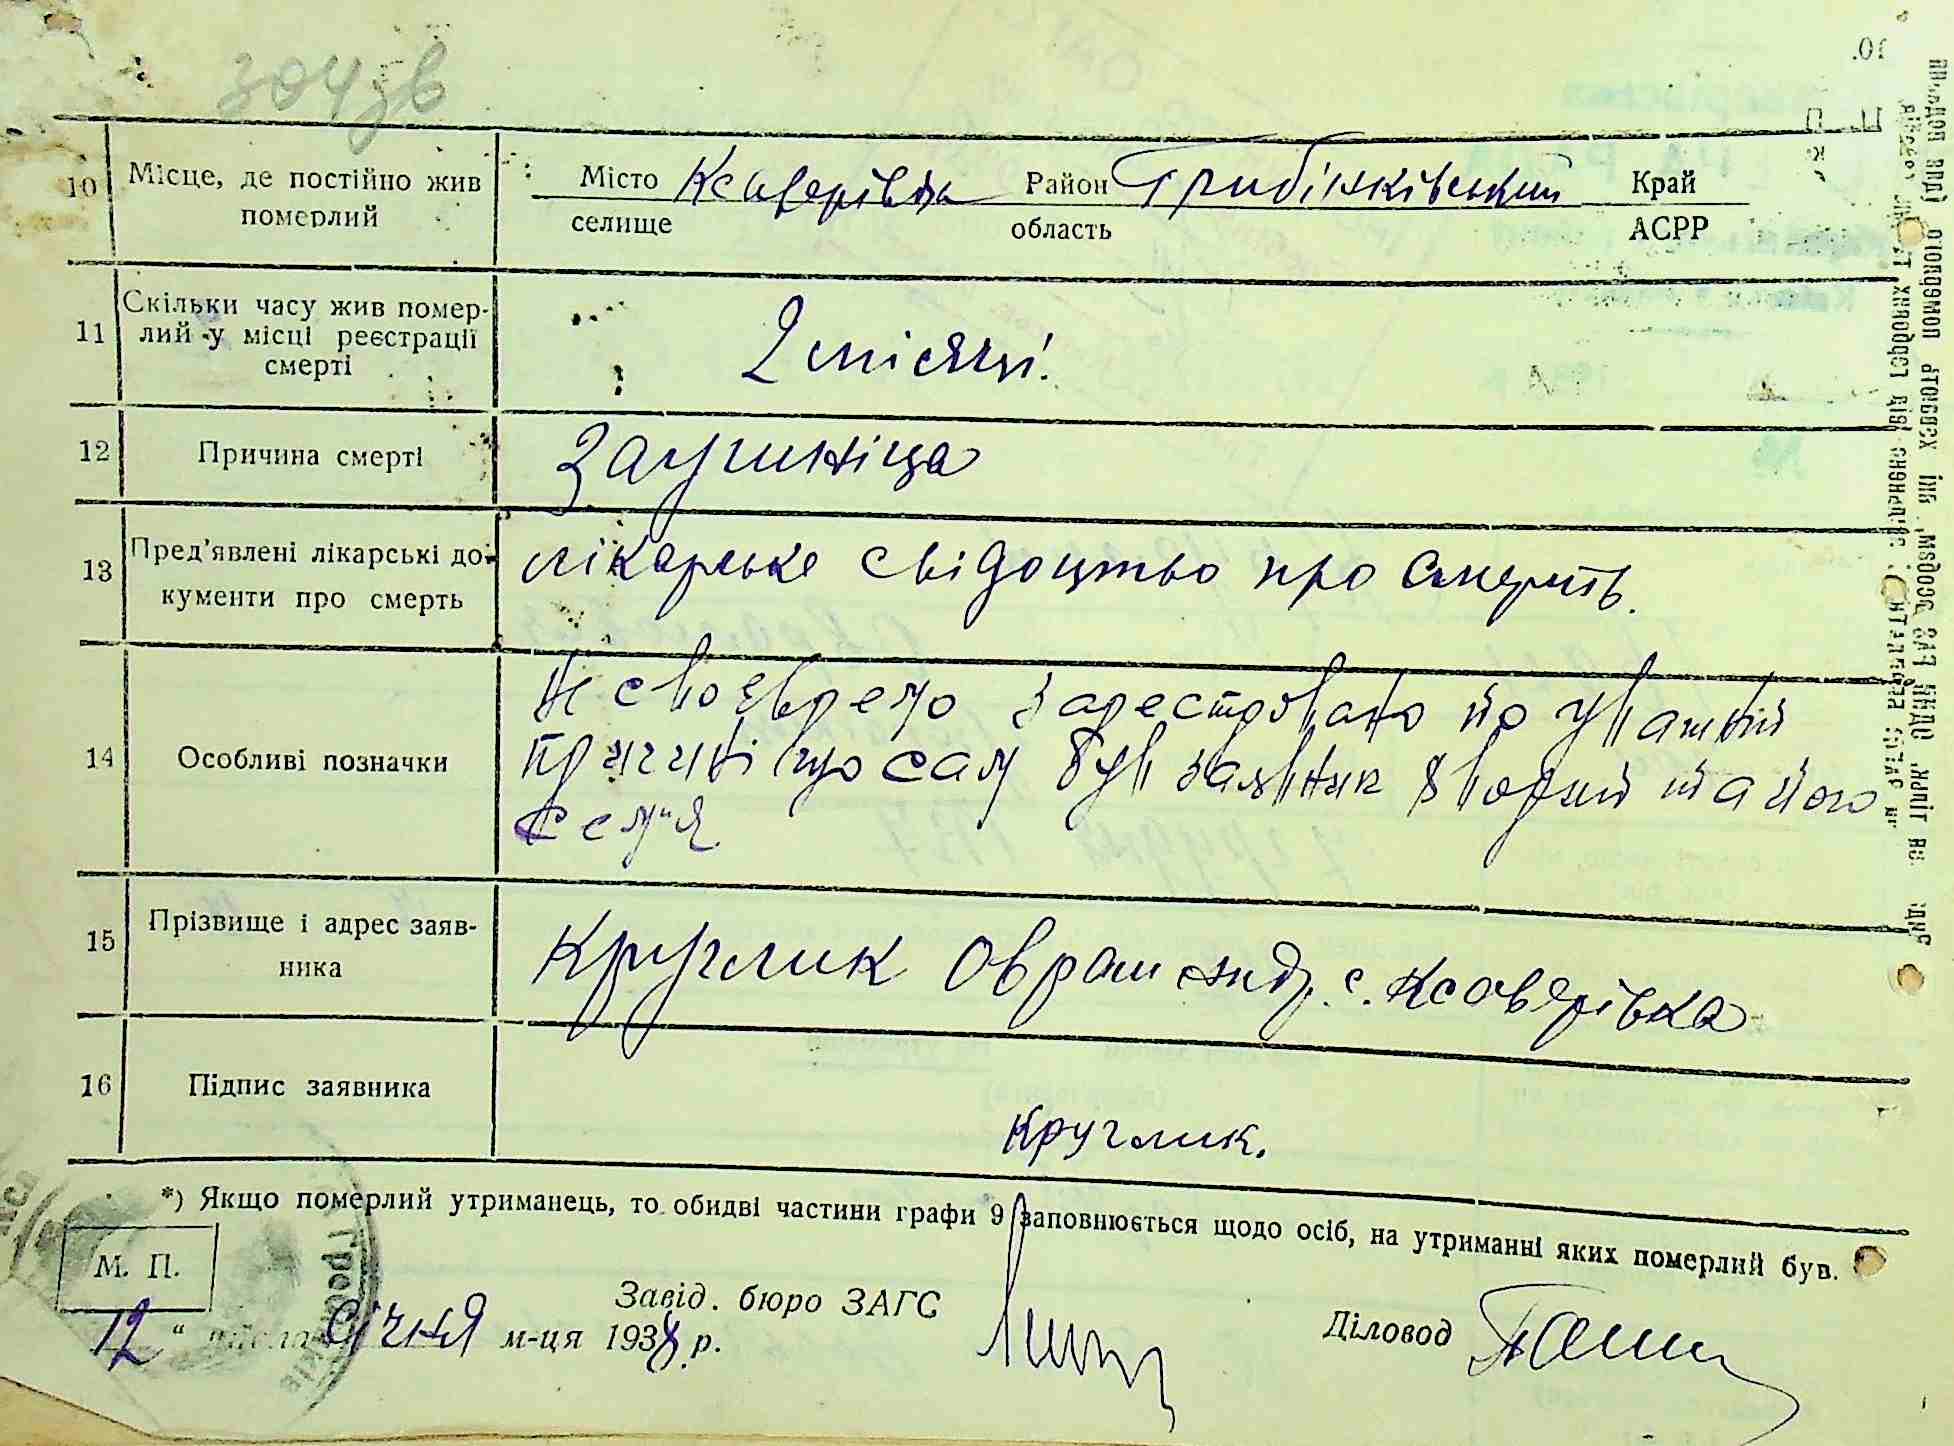 10 Місце, де постійно жив Місто Ксаверівка Район Грибінківський Край
померлий селище область АСРР
11 Скільки часу жив помер-
лий у місці реєстрації 2 місяці.
смерті
12 Причина смерті
13 Пред'явлені лікарські до- лікарське свідоцтво про смерть.
кументи про смерть
Не своєвремо зареєстровано по уважній
14 Особливі позначки причині що сам був заявник хворий та його
сем"я
15 Прізвище і адрес заяв- Круглик с. Ксаверівка
ника
16 Підпис заявника Круглик.
*) Якщо померлий утриманець, то обидві частини графи 9 заповнюється щодо осіб, на утриманні яких померлий був.
М. П.
Завід. бюро ЗАГС
12 " січня м-ця 1938 р. Діловод